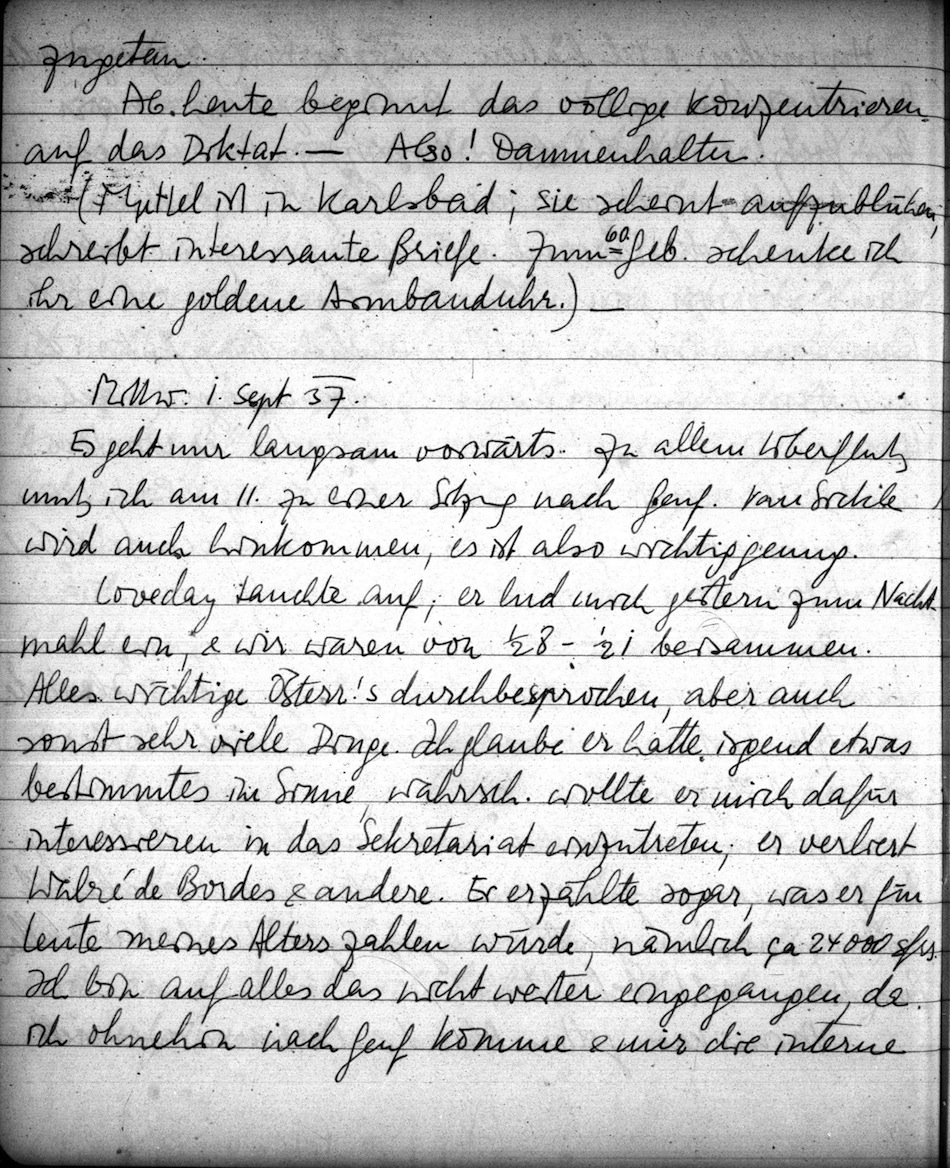 zugetan.
Ab heute beginnt das völlige Konzentrieren
auf das Diktat. — Also! Daumenhalten.
(Muttel ist in Karlsbad; sie scheint aufzublühen,
schreibt interessante Briefe. Zum 60. Geb. schenke ich
ihr eine goldene Armbanduhr.) —
Mittw. 1. Sept 37.
Es geht nur langsam vorwärts. Zu allem Überfluß
muß ich am 11. zu einer Sitzg nach Genf. Van Sickle
wird auch hinkommen, es ist also wichtig genug.
Loveday tauchte auf; er lud mich gestern zum Nacht-
mahl ein, & wir waren von ½8 – ½1 beisammen.
Alles wichtige Österr.'s durchbesprochen, aber auch
sonst sehr viele Dinge. Ich glaube er hatte irgend etwas
bestimmtes im Sinne, wahrsch. wollte er mich dafür
interessieren in das Sekretariat einzutreten; er verliert
Walré de Bordes & andere. Er erzählte sogar, was er für
Leute meines Alters zahlen würde, nämlich ça 24000 sfrs.
Ich bin auf alles das nicht weiter eingegangen, da
ich ohnehin nach Genf komme & mir die interne